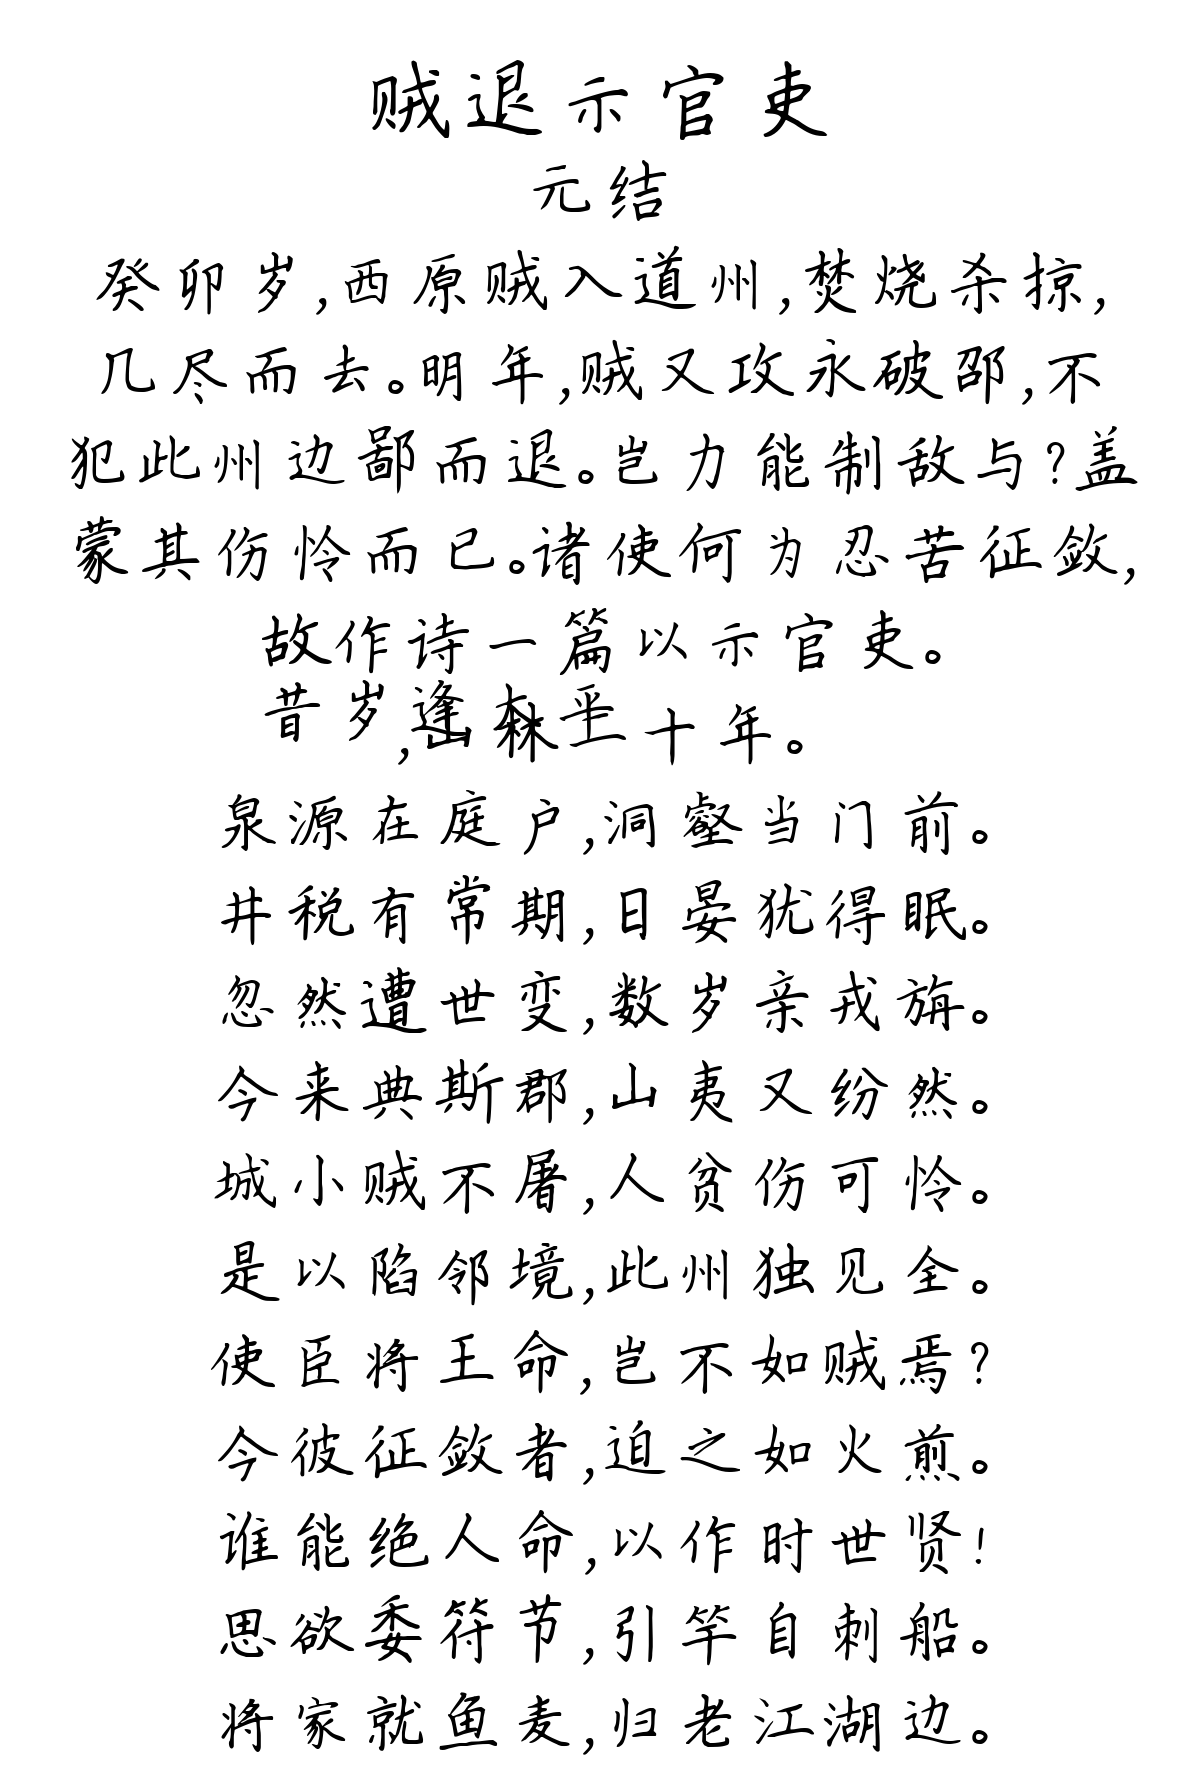 贼退示官吏
元结
癸卯岁,西原贼入道州,焚烧杀掠,
几尽而去。明年,贼又攻永破邵,不
犯此州边鄙而退。岂力能制敌与?盖
蒙其伤怜而已。诸使何为忍苦征敛,
故作诗一篇以示官吏。
昔岁逢太平
,山林二十年。
泉源在庭户,洞壑当门前。
井税有常期,日晏犹得眠。
忽然遭世变,数岁亲戎旃。
今来典斯郡,山夷又纷然。
城小贼不屠,人贫伤可怜。
是以陷邻境,此州独见全。
使臣将王命,岂不如贼焉?
今彼征敛者,迫之如火煎。
谁能绝人命,以作时世贤!
思欲委符节,引竿自刺船。
将家就鱼麦,归老江湖边。